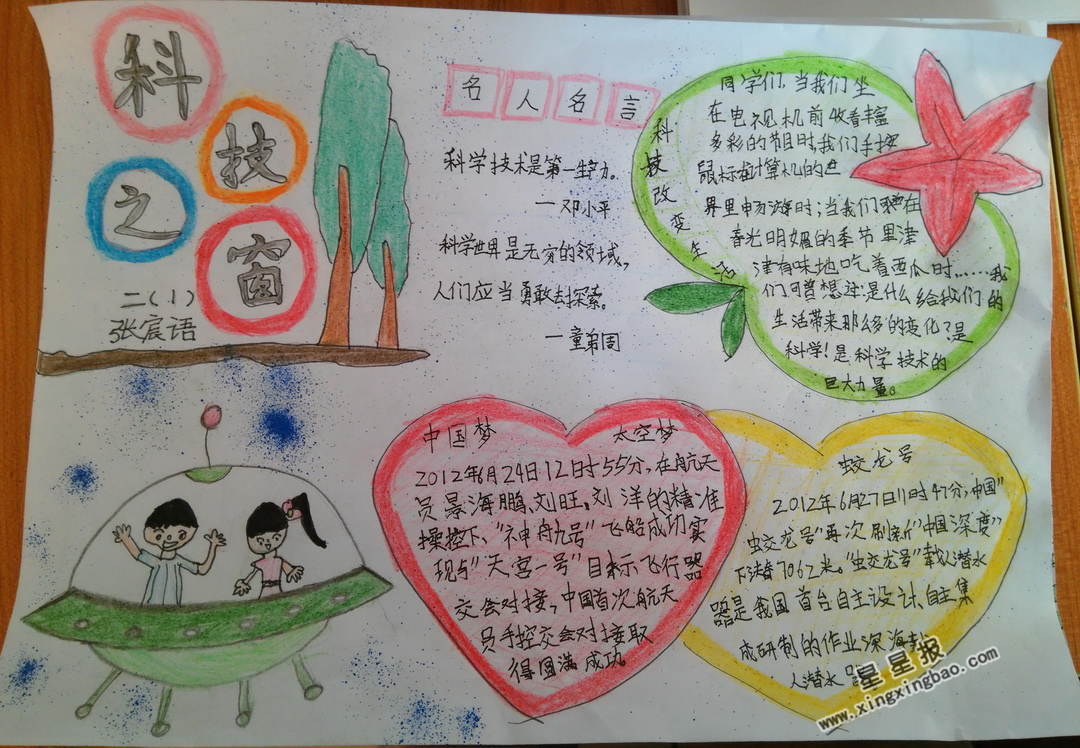 科
技
之
窗
二(1)
张宸语
名人名言
科学技术是第一生产力。
—邓小平
科学世界是无穷的领域,
人们应当勇敢去探索。
—童第周
科技改变生活
同学们,当我们坐
在电视机前收看丰富
多彩的节目时,我们手按
鼠标在计算机的世
界里畅游时;当我们在
春光明媚的季节里津
津有味地吃着西瓜时……我
们可曾想过:是什么给我们的
生活带来那么多的变化?是
科学!是科学技术的
巨大力量。
中国梦 太空梦
2012年6月24日12时55分,在航天
员景海鹏、刘旺、刘洋的精准
操控下、“神舟九号”飞船成功实
现与“天宫一号”目标飞行器
交会对接,中国首次航天
员手控交会对接取
得圆满成功。
蛟龙号
2012年6月27日11时47分,中国“
蛟龙号”再次刷新“中国深度”
下潜7062米。“蛟龙号”载人潜水
器是我国首台自主设计、自主集
成研制的作业深海载
人潜水
星星报
www.xingxingbao.com